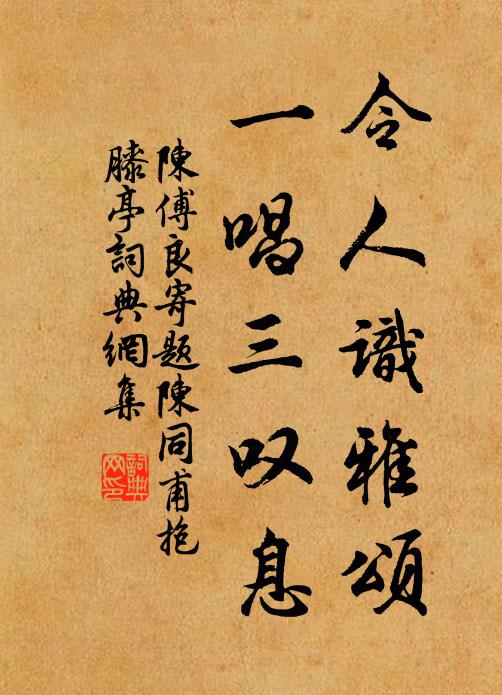 令人識雅頌
一唱三叹息
陳傅良寄題陳同甫抱
膝亭詞典網集
詞典
网印